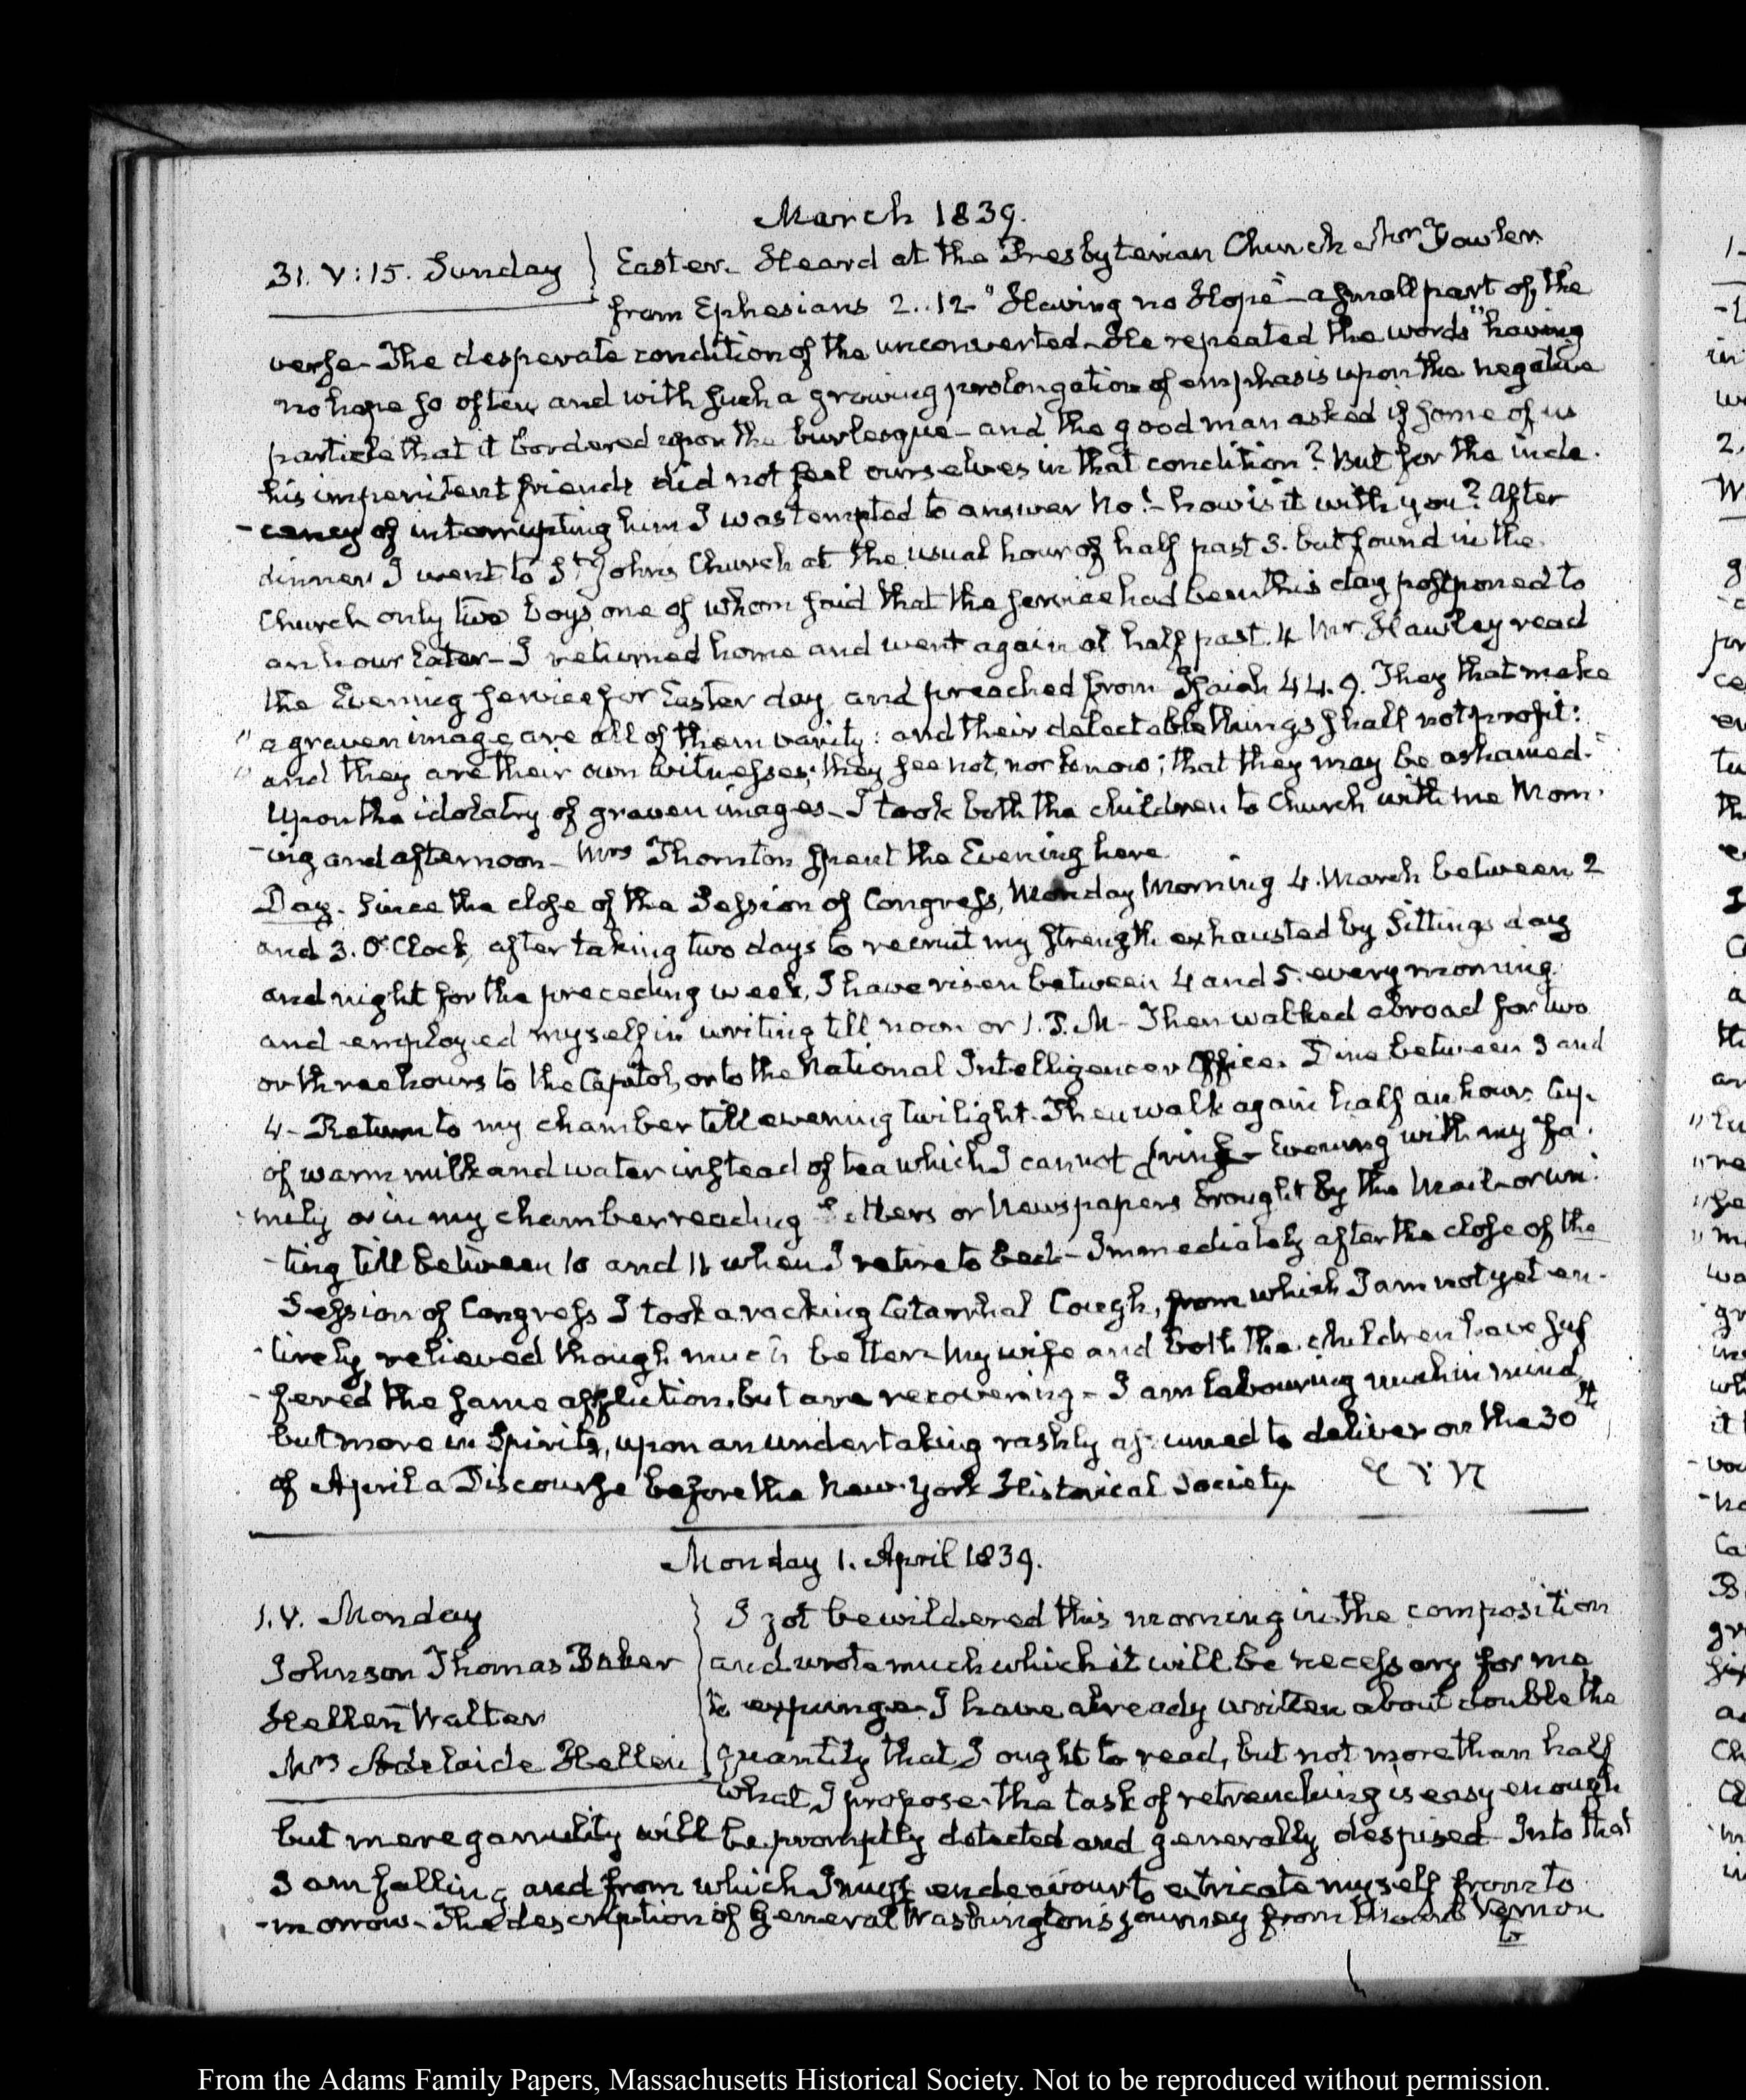 March 1839.
31. V:15. Sunday } Easter. Heard at the Presbyterian Church Mr Fowler
from Ephesians 2..12 "Having no Hope" a small part of the
verse. The desperate condition of the unconverted. He repeated the words "having
no hope so often and with such a growing prolongation of emphasis upon the negative
particle that it bordered upon the burlesque - and the good man asked if some of us
his impenitent friends did not feel ourselves in that condition? But for the inde-
-cency of interrupting him I was tempted to answer No! - how is it with you? After
dinner I went to St Johns Church at the usual hour of half past 3. but found in the
Church only two boys one of whom said that the service had been this day postponed to
an hour later - I returned home and went again at half past 4 Mr Hawley read
the Evening service for Easter day and preached from Isaiah 44.9. They that make
" a graven image are all of them vanity: and their delectable things shall not profit:
" and they are their own witnesses; they see not, nor know; that they may be ashamed."
Upon the idolatry of graven images - I took both the children to Church with me Morn-
-ing and afternoon - Mrs Thornton spent the Evening here
Day. Since the close of the Session of Congress, Monday Morning 4. March between 2
and 3. O'Clock, after taking two days to recruit my strength exhausted by Sittings day
and night for the preceding week, I have risen between 4 and 5. every morning
and employed myself in writing till noon or 1. P.M - Then walked abroad for two
or three hours to the Capitol, or to the National Intelligencer Office. Dine between 3 and
4 - Return to my chamber till evening twilight - Then walk again half an hour. Cup
of warm milk and water instead of tea which I cannot drink - Evening with my fa-
-mily or in my chamber reading Letters or Newspapers brought by the Mail - or wri-
-ting till between 10 and 11 when I retire to bed - Immediately after the close of the
Session of Congress I took a racking Catarrhal Cough, from which I am not yet en-
-tirely relieved though much better - My wife and both the children have suf
-fered the same affliction, but are recovering - I am labouring much in mind,
but more in Spirits, upon an undertaking rashly assumed to deliver on the 30th
of April a Discourse before the New-York Historical Society.
Monday 1. April 1839.
1. V. Monday
Johnson Thomas Baker
Hellen Walter
Mrs Adelaide Hellen
I got bewildered this morning in the composition
and wrote much which it will be necessary for me
to expunge. I have already written about double the
quantity that I ought to read, but not more than half
what I propose - the task of retrenching is easy enough
but mere garrulity will be promptly detected and generally despised - Into that
I am falling and from which I must endeavour to extricate myself from to
-morrow - The description of General Washington's journey from Mount Vernon
to
From the Adams Family Papers, Massachusetts Historical Society. Not to be reproduced without permission.